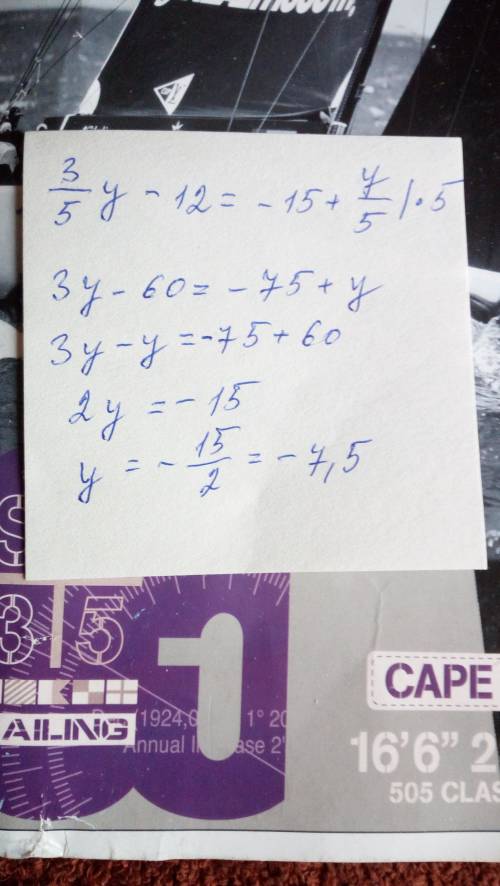 3/5 y - 12 = -15 + y/5 | · 5
3y - 60 = -75 + y
3y - y = -75 + 60
2y = -15
y = - 15/2 = -7,5
35
1
AILING
1924,0 1° 20
Annual
CAPE
16'6" 2
505 CLAS